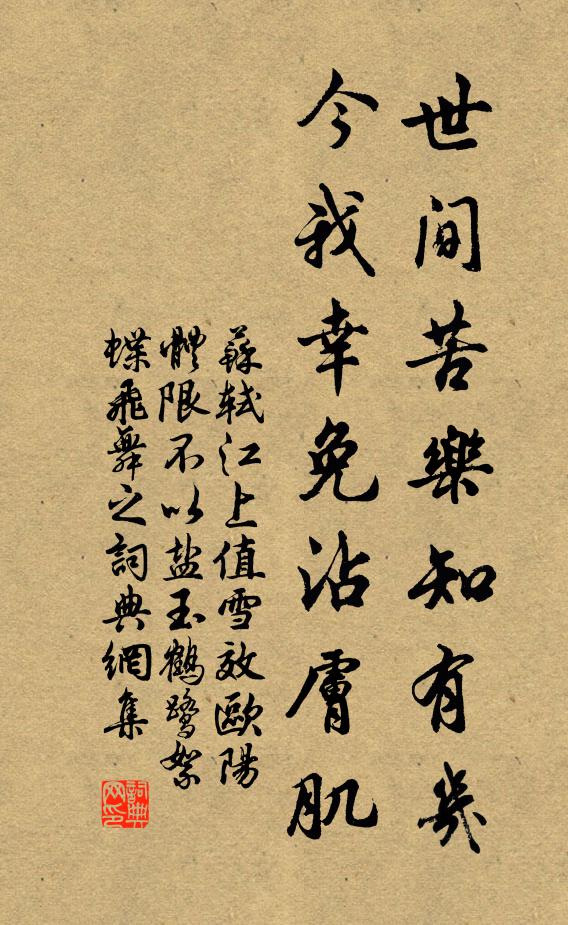 世間苦樂知有幾
今我幸免沾膚肌
蘇軾江上值雪效歐陽
體限不以盐玉鶴鷺絮
蝶飛舞之詞典網集
詞典
网印